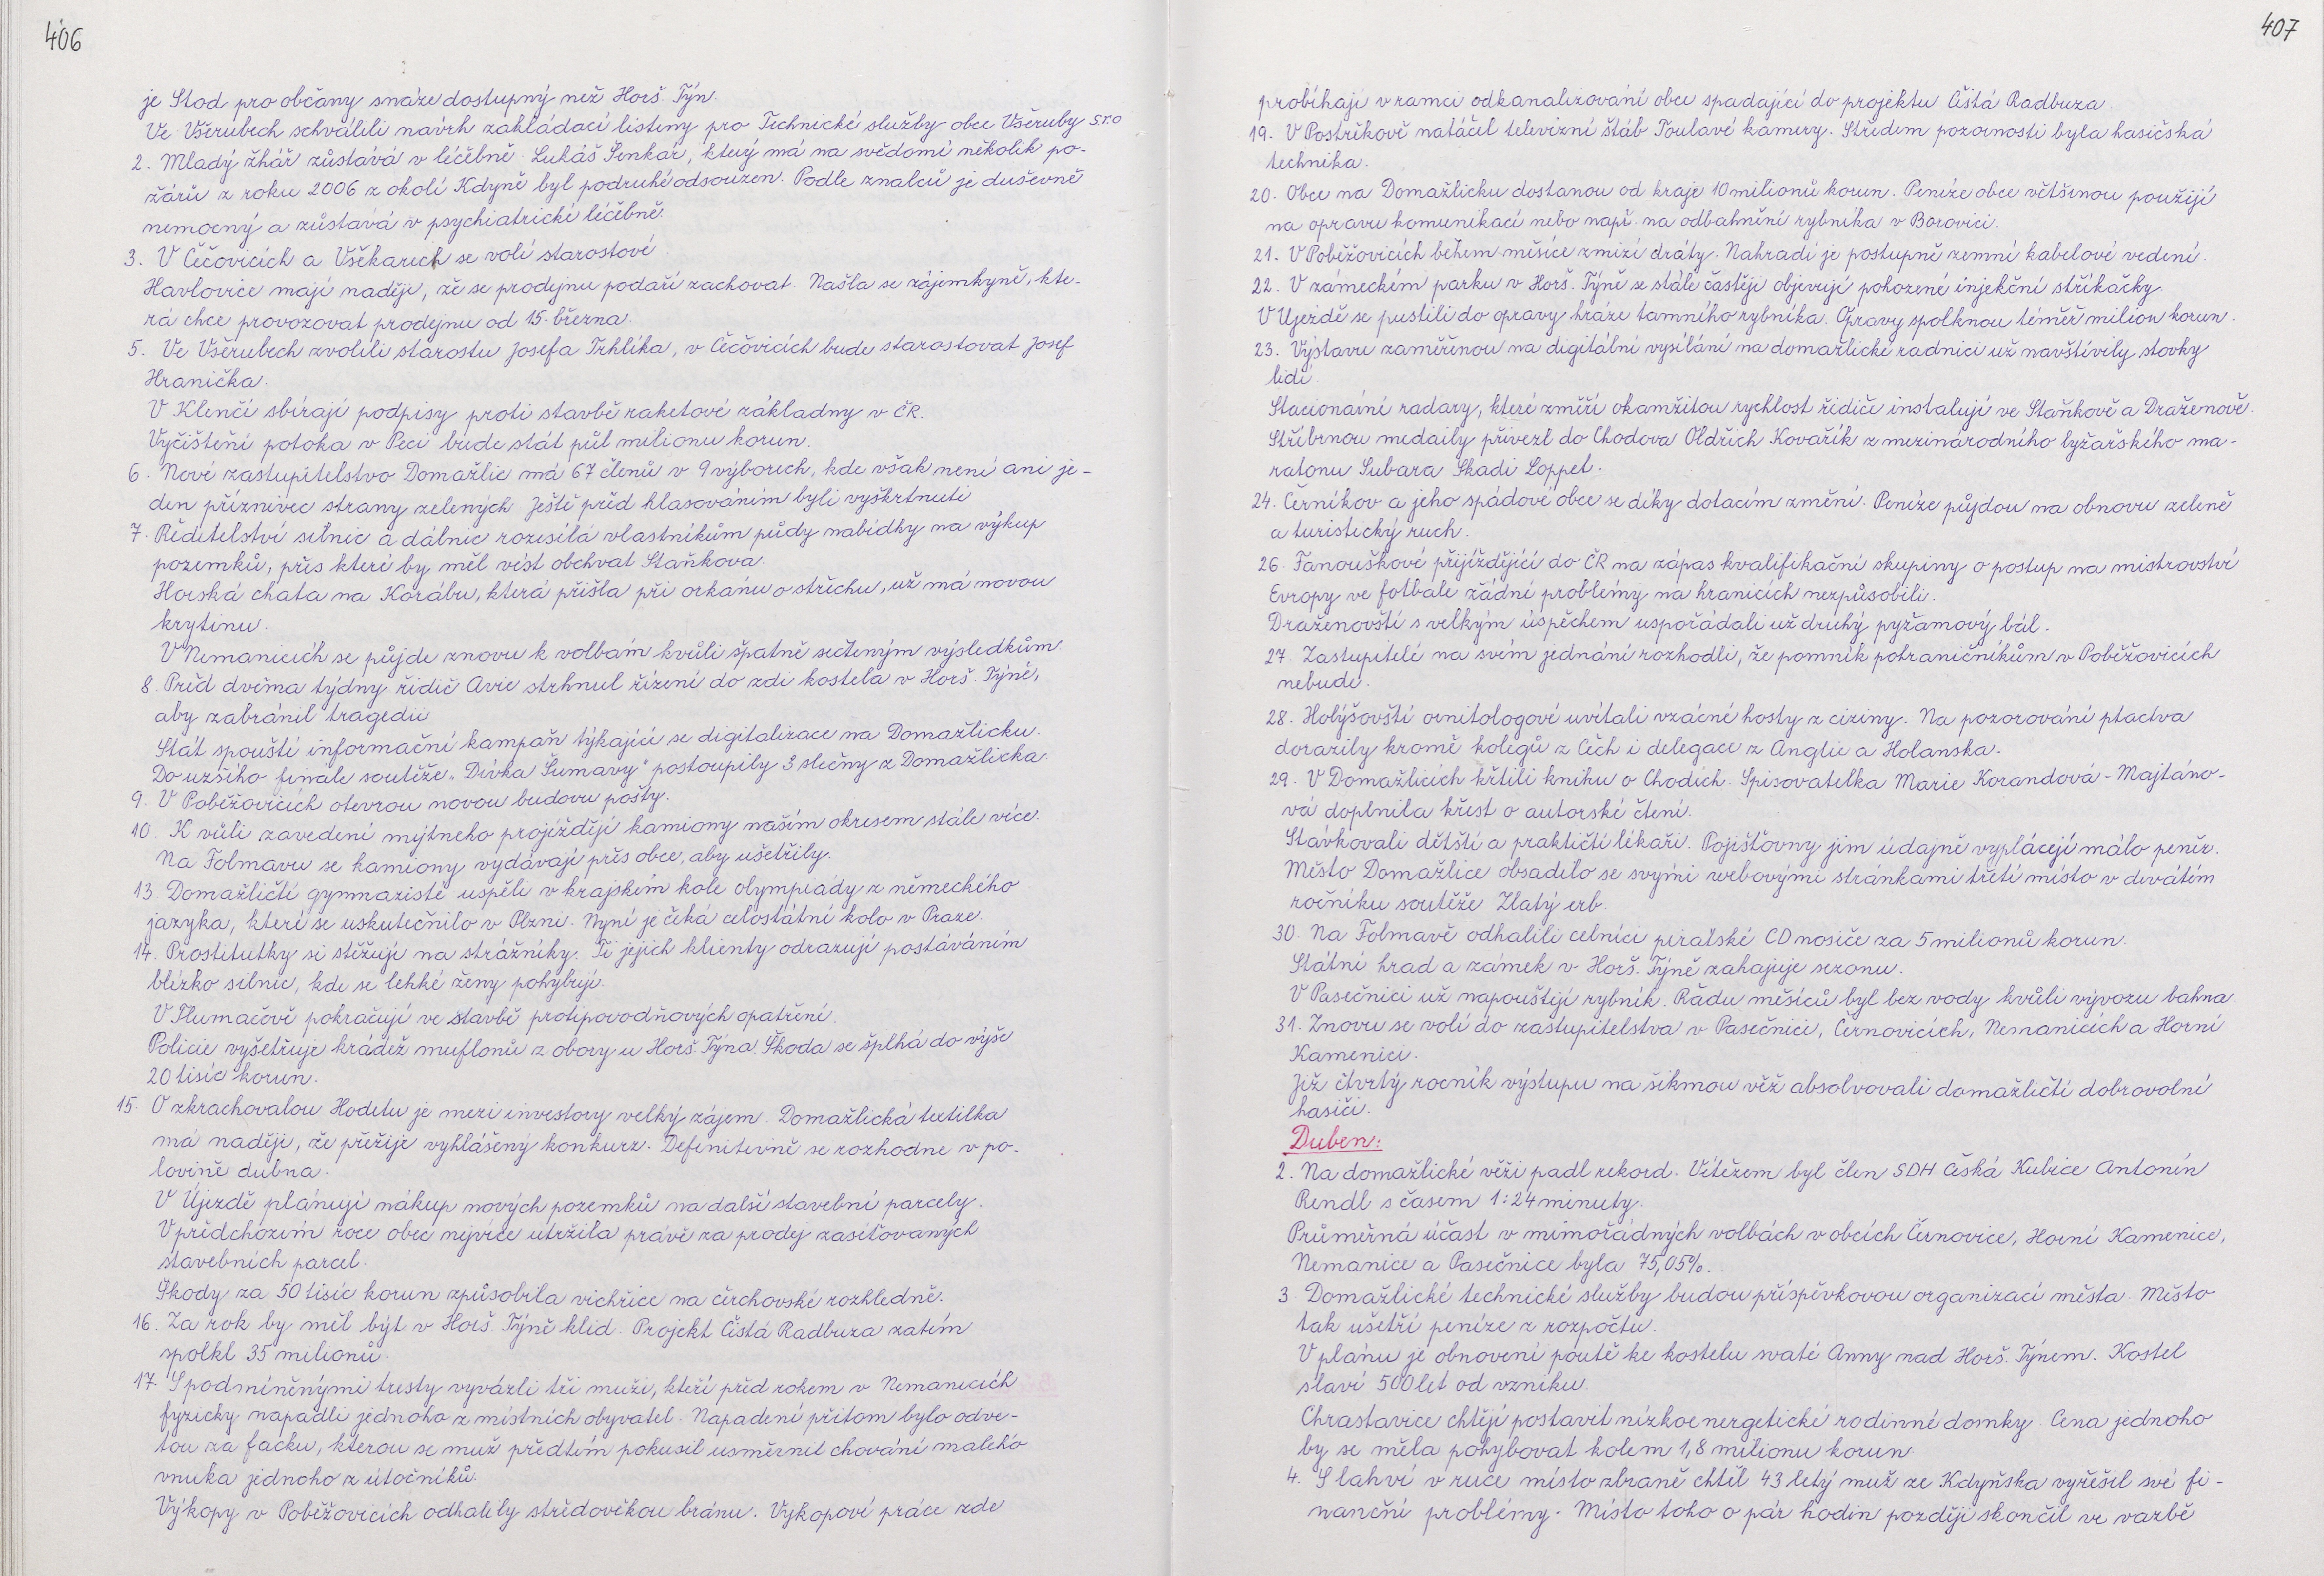 406
je Stod pro občany snáze dostupný než Horš. Týn.
Ve Všerubech schválili navrh zakládací listiny pro Technické služby obce Všeruby s.r.o
2. Mladý žhář zůstává v léčebně. Lukáš Šenkář, který má na svědomí několik po-
žárů z roku 2006 z okolí Kdyně byl podruhé odsouzen. Podle znalců je duševně
nemocný a zůstává v psychiatrické léčebně.
3. V Čečovicích a Vškarech se volí starostové
Havlovice mají naději, že se prodejnu podaří zachovat. Našla se zájemkyně, kte-
rá chce provozovat prodejnu od 15. března.
5. Ve Všerubech zvolili starostu Josefa Trhlíka, v Čečovicích bude starostovat Josef
Hranička.
V Klenčí sbírají podpisy proti stavbě raketové základny v ČR.
Vyčištění potoka v Peci bude stát půl milionu korun.
6. Nové zastupitelstvo Domažlic má 67 členů v 9 výborech, kde však není ani je-
den příznivec strany zelených. Ještě před hlasováním byli vyškrtnuti
7. Ředitelství silnic a dálnic rozesílá vlastníkům půdy nabídky na výkup
pozemků, přes které by měl vést obchvat Staňkova.
Horská chata na Korábu, která přišla při orkánu o střechu, už má novou
krytinu.
V Nemanicích se půjde znovu k volbám kvůli špatně sečteným výsledkům.
8. Před dvěma týdny řidič Avie strhnul řízení do zdi kostela v Horš. Týně,
aby zabránil tragedii
Stát spouští informační kampaň týkající se digitalizace na Domažlicku.
Do užšího finále soutěže „Dívka Šumavy" postoupily 3 slečny z Domažlicka.
9. V Poběžovicích otevrou novou budovu pošty.
10. K vůli zavedení mýtneho projíždějí kamiony naším okresem stále více.
Na Folmavu se kamiony vydávají přes obce, aby ušetřily.
13. Domažličtí gymnazisté uspěli v krajském kole olympiády z německého
jazyka, které se uskutečnilo v Plzni. Nyní je čeká celostátní kolo v Praze.
14. Prostitutky si stěžují na strážníky. Ti jejich klienty odrazují postáváním
blízko silnic, kde se lehké ženy pohybují.
V Tlumačově pokračují ve stavbě protipovodňových opatření.
Policie vyšetřuje krádež muflonů z obory u Horš. Týna. Škoda se šplhá do výše
20 tisíc korun.
15. O zkrachovalou Hodetu je mezi investory velký zájem. Domažlická textilka
má naději, že přežije vyhlášený konkurz. Defenitivně se rozhodne v po-
lovině dubna.
V Újezdě plánují nákup nových pozemků na další stavební parcely.
V předchozím roce obec nejvíce utržila právě za prodej zasíťovaných
stavebních parcel.
Škody za 50 tisíc korun způsobila vichřice na čerchovské rozhledně.
16. Za rok by měl být v Horš. Týně klid. Projekt Čistá Radbuza zatím
spolkl 35 milionů.
17. S podmíněnými tresty vyvázli tři muži, kteří před rokem v Nemanicích
fyzicky napadli jednoho z místních obyvatel. Napadení přitom bylo odve-
tou za facku, kterou se muž předtím pokusil usměrnit chování malého
vnuka jednoho z útočníků.
Výkopy v Poběžovicích odhalily středověkou bránu. Vykopové práce zde
407
probíhají v ramci odkanalizování obce spadající do projektu Čistá Radbuza.
19. V Postřekově natáčel televizní štáb Toulavé kamery. Středem pozornosti byla hasičská
technika.
20. Obce na Domažlicku dostanou od kraje 10 milionů korun. Peníze obce většinou použijí
na opravu komunikací nebo např. na odbahnění rybníka v Borovici.
21. V Poběžovicích během měsíce zmizí dráty. Nahradí je postupně zemní kabelové vedení.
22. V zámeckém parku v Horš. Týně se stále častěji objevují pohozené injekční stříkačky.
V Ujezdě se pustili do opravy hráze tamního rybníka. Opravy spolknou téměř milion korun.
23. Výstavu zaměřenou na digitální vysílání na domažlické radnici už navštívily stovky
lidí.
Stacionární radary, které změří okamžitou rychlost řidiče instalují ve Staňkově a Draženově.
Stříbrnou medaily přivezl do Chodova Oldřich Kovařík z mezinárodního lyžařského ma-
ratonu Subara Skadi Loppet.
24. Černíkov a jeho spádové obce se díky dotacím změní. Peníze půjdou na obnovu zeleně
a turistický ruch.
26. Fanouškové přijíždějící do ČR na zápas kvalifikační skupiny o postup na mistrovství
Evropy ve fotbale žádné problémy na hranicích nezpůsobili.
Draženovští s velkým úspěchem uspořádali už druhý pyžamový bál.
27. Zastupitelé na svém jednání rozhodli, že pomník pohraničníkům v Poběžovicích
nebude.
28. Holýšovští ornitologové uvítali vzácné hosty z ciziny. Na pozorování ptactva
dorazily kromě kolegů z Čech i delegace z Anglie a Holanska.
29. V Domažlicích křtili knihu o Chodích. Spisovatelka Marie Korandová - Majtáno-
vá doplnila křest o autorské čtení.
Stávkovali dětští a praktičtí lékaři. Pojišťovny jim údajně vyplácejí málo peněz.
Město Domažlice obsadilo se svými webovými stránkami třetí místo v devátém
ročníku soutěže Zlatý erb.
30. Na Folmavě odhalili celníci pirátské CD nosiče za 5 milionů korun.
Státní hrad a zámek v Horš. Týně zahajuje sezonu.
V Pasečnici už napouštějí rybník. Řadu měsíců byl bez vody kvůli vývozu bahna.
31. Znovu se volí do zastupitelstva v Pasečnici, Černovicích, Nemanicích a Horní
Kamenici.
Již čtvrtý rocník výstupu na šikmou věž absolvovali domažličtí dobrovolní
hasiči.
Duben:
2. Na domažlické věži padl rekord. Vítězem byl člen SDH Česká Kubice Antonín
Rendl s časem 1:24 minuty.
Průměrná účast v mimořádných volbách v obcích Černovice, Horní Kamenice,
Nemanice a Pasečnice byla 75,05%.
3. Domažlické technické služby budou příspěvkovou organizací města. Město
tak ušetří peníze z rozpočtu.
V plánu je obnovení poutě ke kostelu svaté Anny nad Horš. Týnem. Kostel
slaví 500 let od vzniku.
Chrastavice chtějí postavit nízkoenergetické rodinné domky. Cena jednoho
by se měla pohybovat kolem 1,8 milionu korun.
4. S lahví v ruce místo zbraně chtěl 43 letý muž ze Kdyňska vyřešil své fi-
nanční problémy. Místo toho o pár hodin později skončil ve vazbě